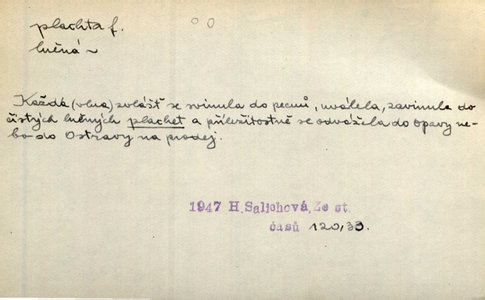 plachta f.
lněná ~
Každá (vlna) zvlášť se svinula do pecnů, uválela, zavinula do
čistých lněných plachet a příležitostně se odvážela do Opavy ne-
bo do Ostravy na prodej.
1947 H.Saljohová,Ze st.
časů 120,33.